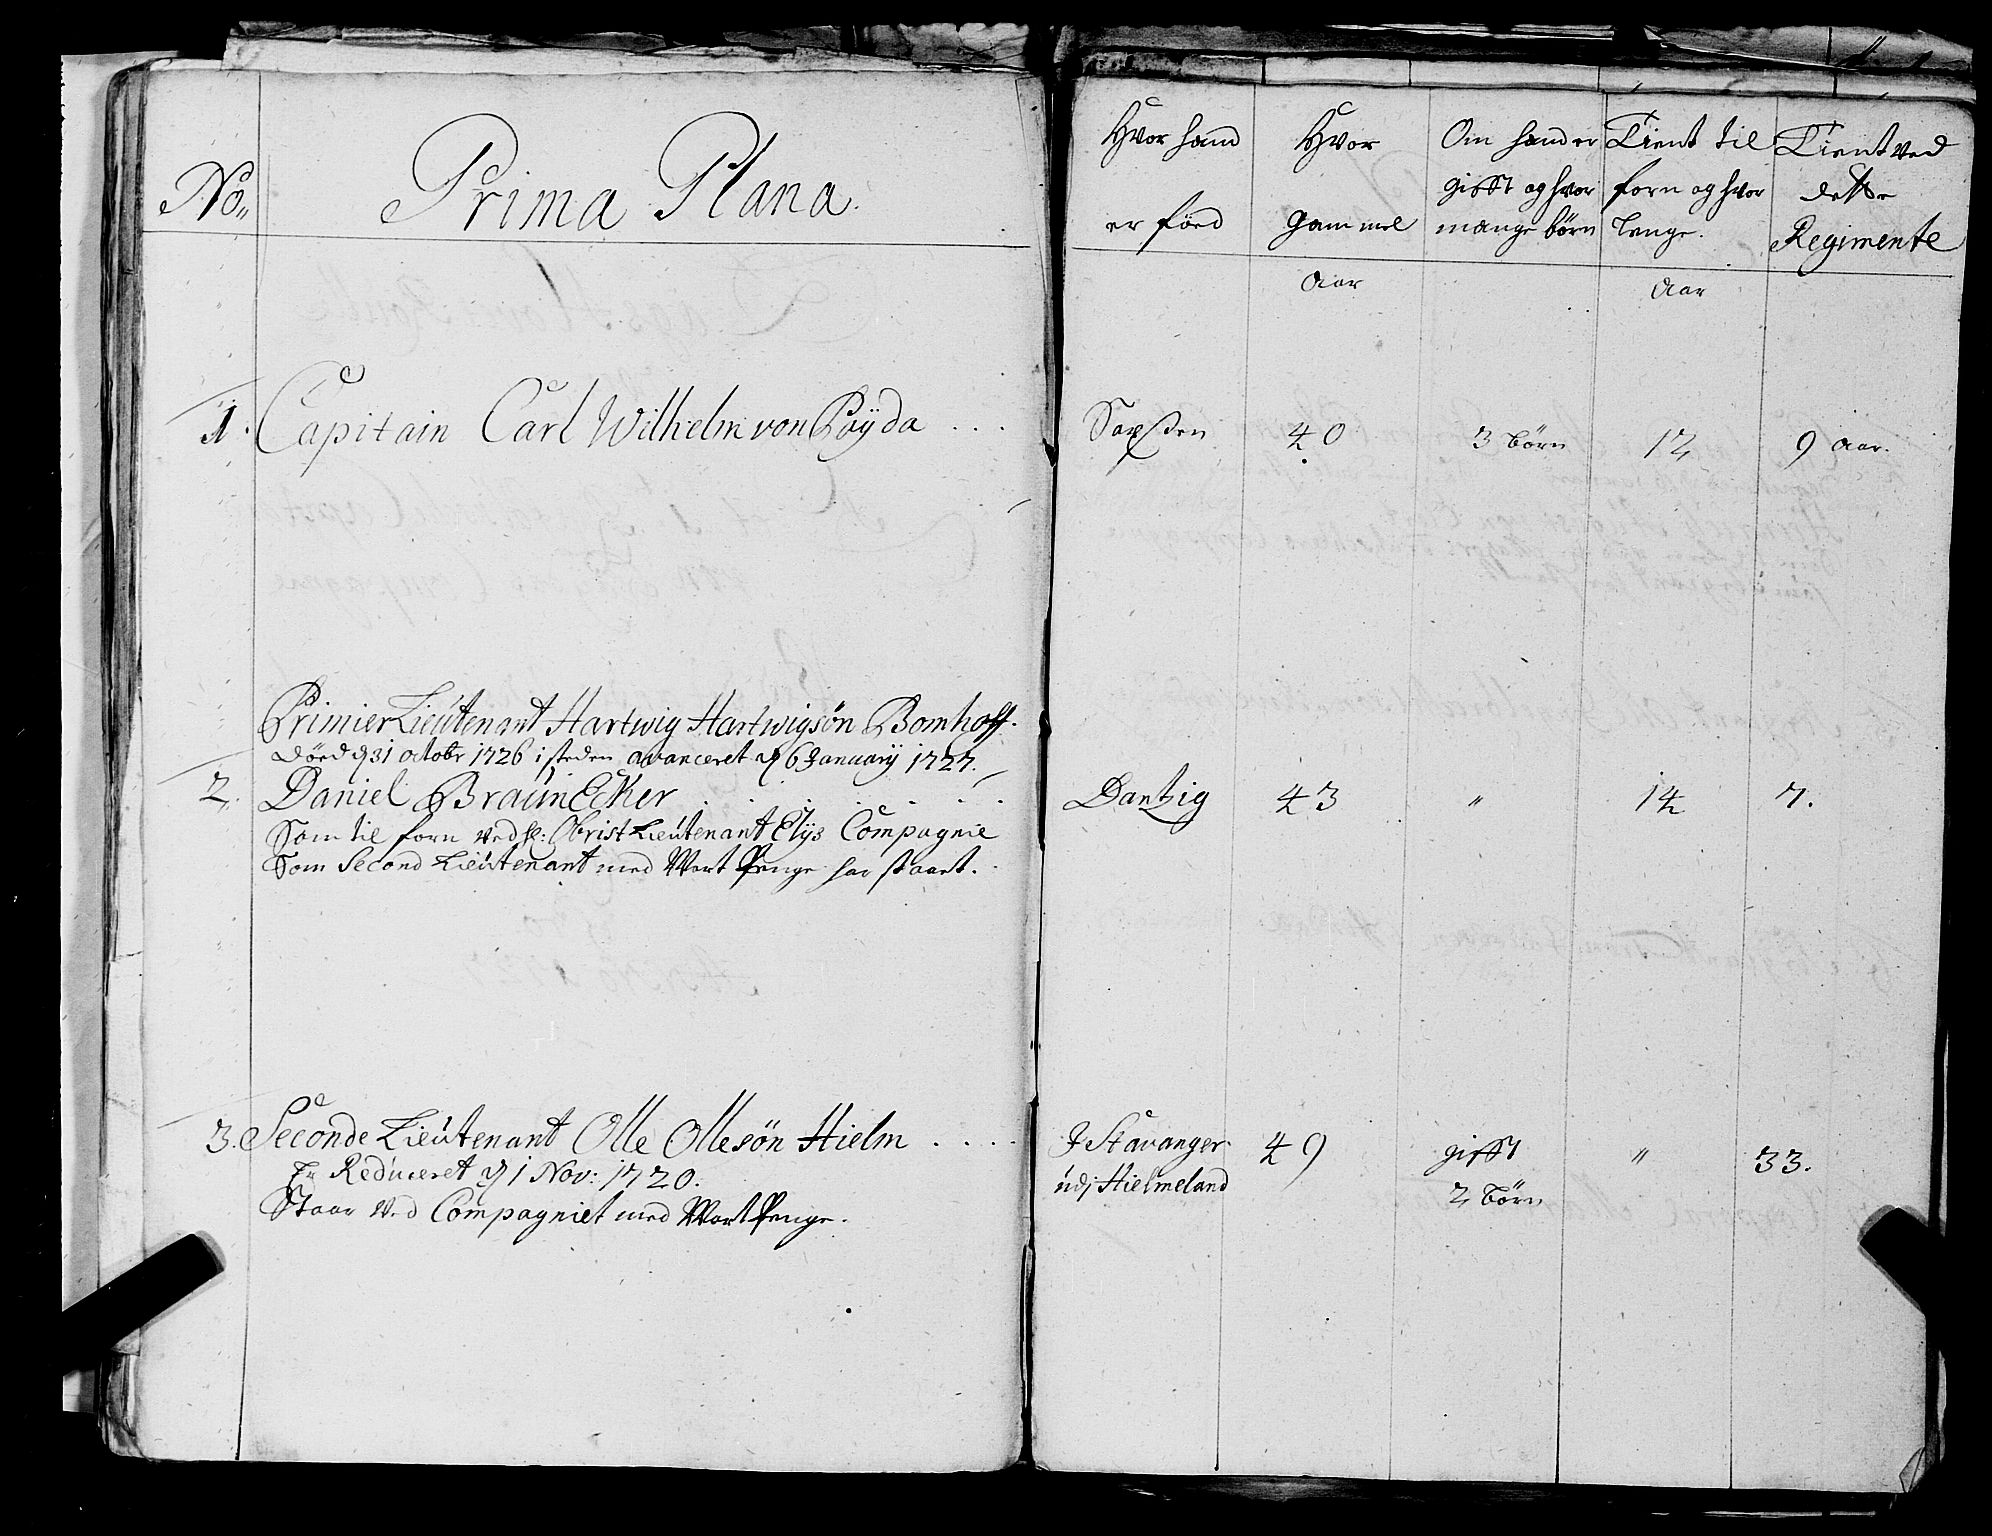 No.. Prima Plana.
1. Capitain Carl Wilhelm von Pöÿda ....
Primier Lieutenant Hartwig Hartwigsön Bomhoff.
döed d 31 octobr 1726 i steden avanceret d 6 Januarÿ 1727.
2. Daniel BraunEcker . . . . . . .
Som til forn ved sl: Obrist Lieutenant Elÿs Compagnie
Som Second Lieutenant med Wart Penge har staaet.
3. Seconde Lieutenant Olle Ollesön Hielm . . . .
Er Reduceret d 1 Nov: 1720.
Staar ved Compagniet med Wart Penge.
Hvor hand er föed
Hvor gammel
Om hand er gifft og hvor mange börn
Tient til forn og hvor lenge.
Tient ved dette Regimente
Aar Aar
Saxsen 40 3 börn 12 9 Aar.
Dantzig 43 " 14 7.
I Stavanger 49 gifft " 33.
udj Hielmeland 2 börn